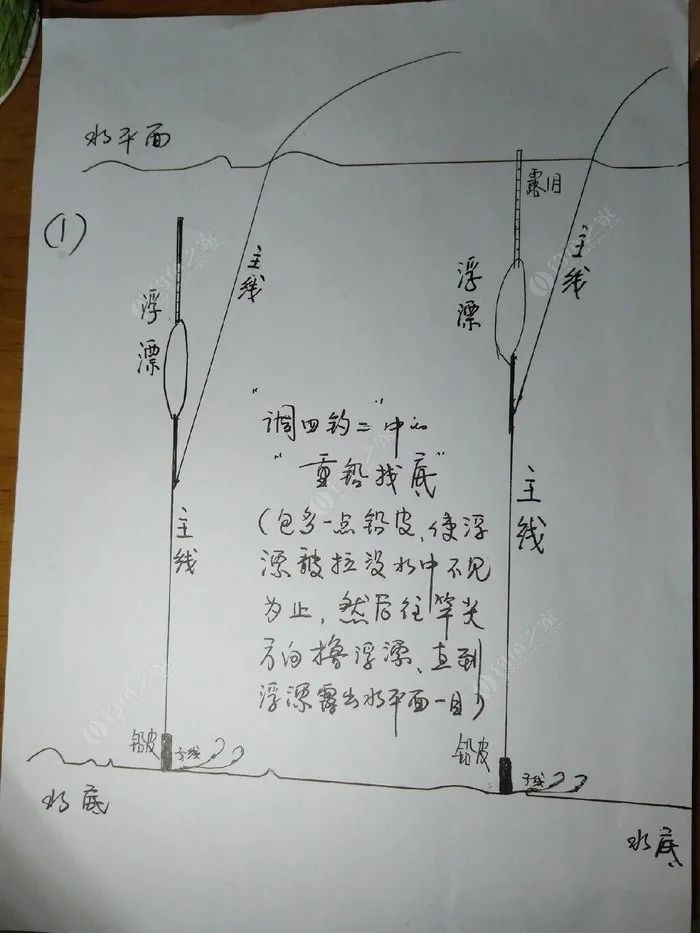 水平面
(1)
露1目
浮漂
主线
浮漂
主线
"调四钓二"中的
"重铅找底"
(包多一点铅皮、使浮
漂被拉没水中不见
为止，然后往竿尖
方向撸浮漂、直到
浮漂露出水平面一目)
主线
主线
铅皮
子线
铅皮
子线
水底
水底
钓鱼之家
钓鱼之家
钓鱼之家
钓鱼之家
钓鱼之家